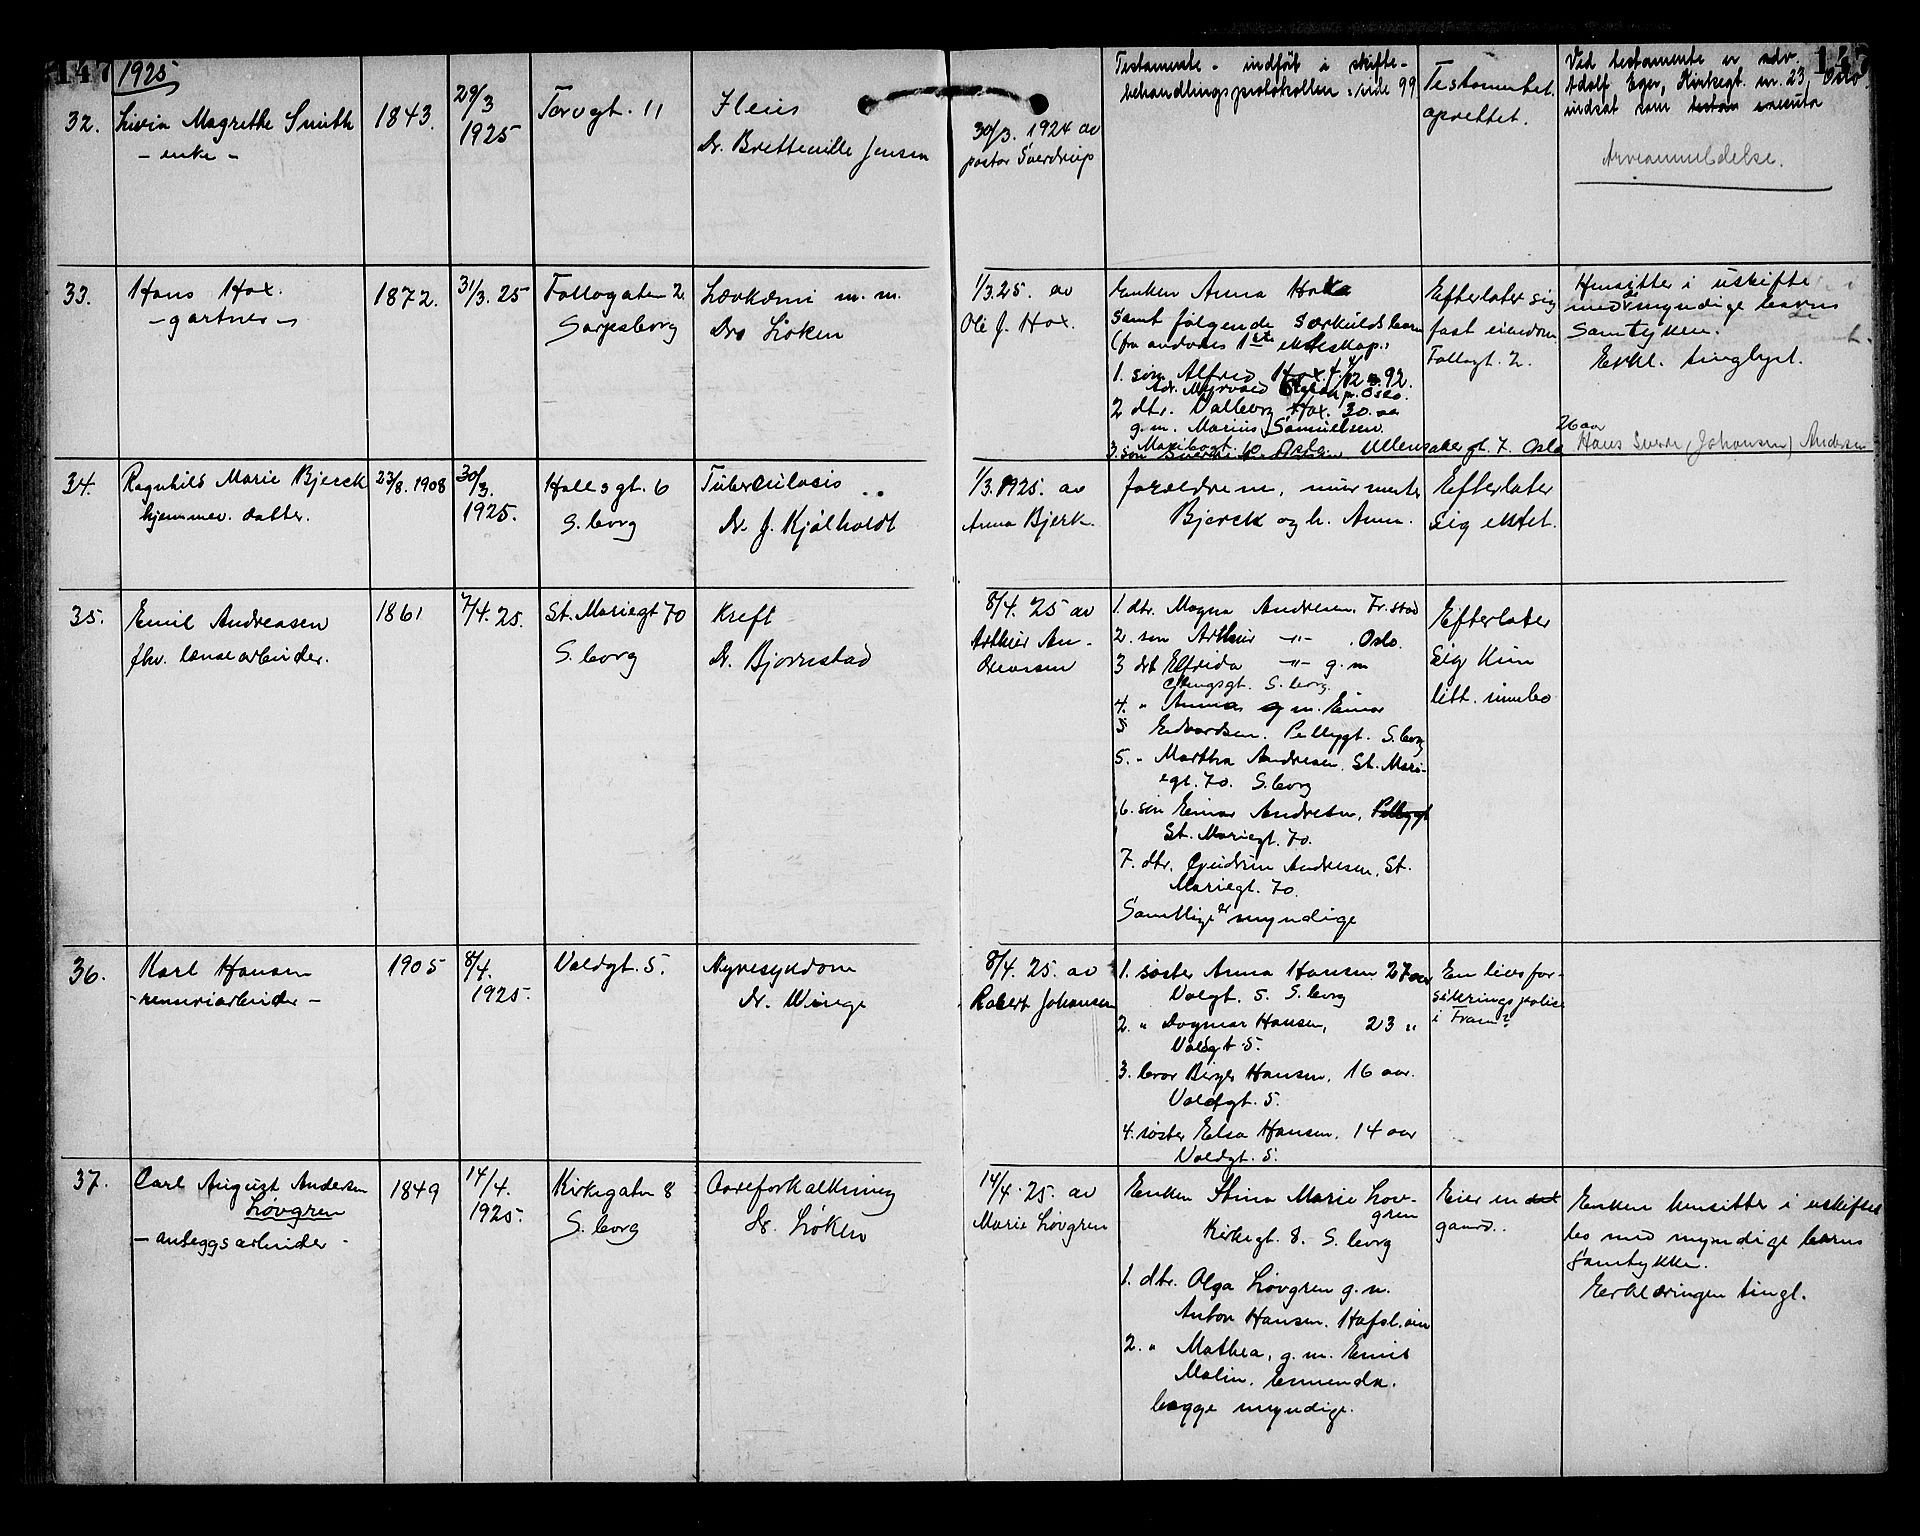 147
1925
147
32.
Livia Magrethe Smith
- enke -
1843.
29/3
1925
Torvgt. 11
Ileus
Dr. Bretteville Jensen
30/3. 1924 av
pastor Sverdrup
Testamente - indført i skifte-
behandlingsprotokollen side 99
Testamentet
oprettet.
Ved testamente er adv.
Adolf Eger, Kirkegt. nr. 23, Oslo
indsat som executor
Arveanmeldelse.
33.
Hans Hox.
- gartner -
1872.
31/3. 25
Follogaten 2.
Sarpsborg
m. m.
Dr. Løken
1/3.25. av
Ole J. Hox.
Enken Anna Hox
samt følgende særkuldsbarn
(fra avdødes 1ste ekteskap:
1. søn Alfred Hox f. 92.
Oslo.
2 dtr. Valborg Hox. 30 aa
g. m. Marius Samuelsen.
3. søn Ullensakergt. 7. Oslo
Efterlater sig
fast eiendom
Follogt. 2.
Hensitter i uskifte
med de myndige barns
samtykke.
Erkl. tinglyst.
26 aar
Hans (Johansen) Andersen
34.
Ragnhild Marie Bjerck
hjemmev. datter.
23/8. 1908
30/3.
1925.
S.borg
Tuberculosis
Dr. J. Kjølholdt
1/3. 1925. av
Anna Bjerk.
forældrene, murmester
Bjerck og h. Anna.
Efterlater
sig intet.
35.
Emil Andreasen
fhv. lensearbeider.
1861
7/4. 25.
St. Mariegt 70
S. borg
Kreft
Dr. Bjørnstad
8/4. 25 av
Arthur An-
dreassen
1. dtr. Magna Andresen. Fr.stad
2. søn Arthur -"- Oslo.
3 dtr Elfrida -"- g. m
S. borg.
4. " Anna g m. Einar
5 Edvardsen. Pellygt. S. borg
5. " Martha Andresen. St. Mari-
egt. 70. S. borg
6. søn Einar Andresen, Pellygt
St. Mariegt. 70.
7. dtr. Andresen. St.
Mariegt. 70.
Samtlige er myndige
Efterlater
sig kun
litt innbo
36.
Karl Hansen
- renseriarbeider -
1905
8/4.
1925.
Voldgt. 5.
Nyresykdom
Dr. Winge
8/4. 25. av
Robert Johansen
1. søster Anna Hansen 27 aar
Volgt. 5. S. borg
2. " Dagmar Hansen, 23 "
Voldgt 5.
3. bror Birger Hansen, 16 aar.
Voldgt. 5.
4. søster Elsa Hansen, 14 aar
Voldgt. 5.
En livsfor-
sikringspolice
i Fram?
37.
Carl August Andersen
Løvgren
- anleggsarbeider -
1849
14/4.
1925.
Kirkegaten 8
S. borg
Aareforkalkning
Dr. Løken
14/4. 25. av
Marie Løvgren
Enken Stina Marie Løv-
gren
Kirkegt. 8. S. borg
1. dtr. Olga Løvgren g. m.
Anton Hansen. Hafsl.øen
2. " Mathea, g. m. Emil
Malin.
begge myndige.
Eier en
gaard.
Enken hensitter i uskiftet
bo med myndige barns
samtykke.
Erklæringen tingl.